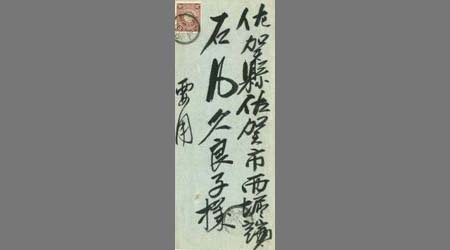 佐賀縣佐賀市西堀端
石丸久良子様
要用